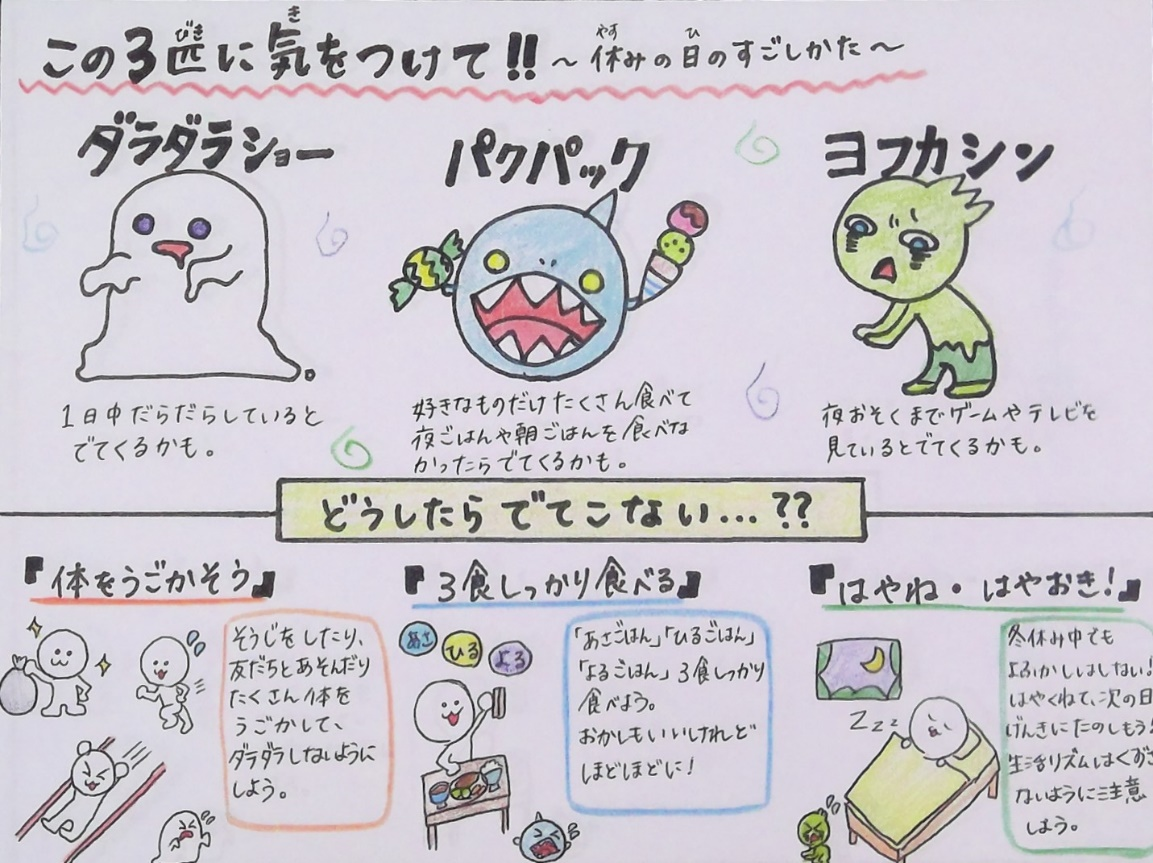 この3匹に気をつけて!! ～休みの日のすごしかた～
びき き やす ひ
ダラダラショー
パクパック
ヨフカシン
1日中だらだらしていると
でてくるかも。
好きなものだけたくさん食べて
夜ごはんや朝ごはんを食べな
かったらでてくるかも。
夜おそくまでゲームやテレビを
見ているとでてくるかも。
どうしたらでてこない…??
『体をうごかそう』
そうじをしたり、
友だちとあそんだり
たくさん体を
うごかして、
ダラダラしないように
しよう。
『3食しっかり食べる』
あさ
ひる
よる
「あさごはん」「ひるごはん」
「よるごはん」3食しっかり
食べよう。
おかしもいいけれど
ほどほどに!
『はやね・はやおき!』
Zzz
冬休み中でも
よふかしはしない!
はやくねて、次の日
げんきにたのしもう
生活リズムはくずさ
ないように注意
しよう。